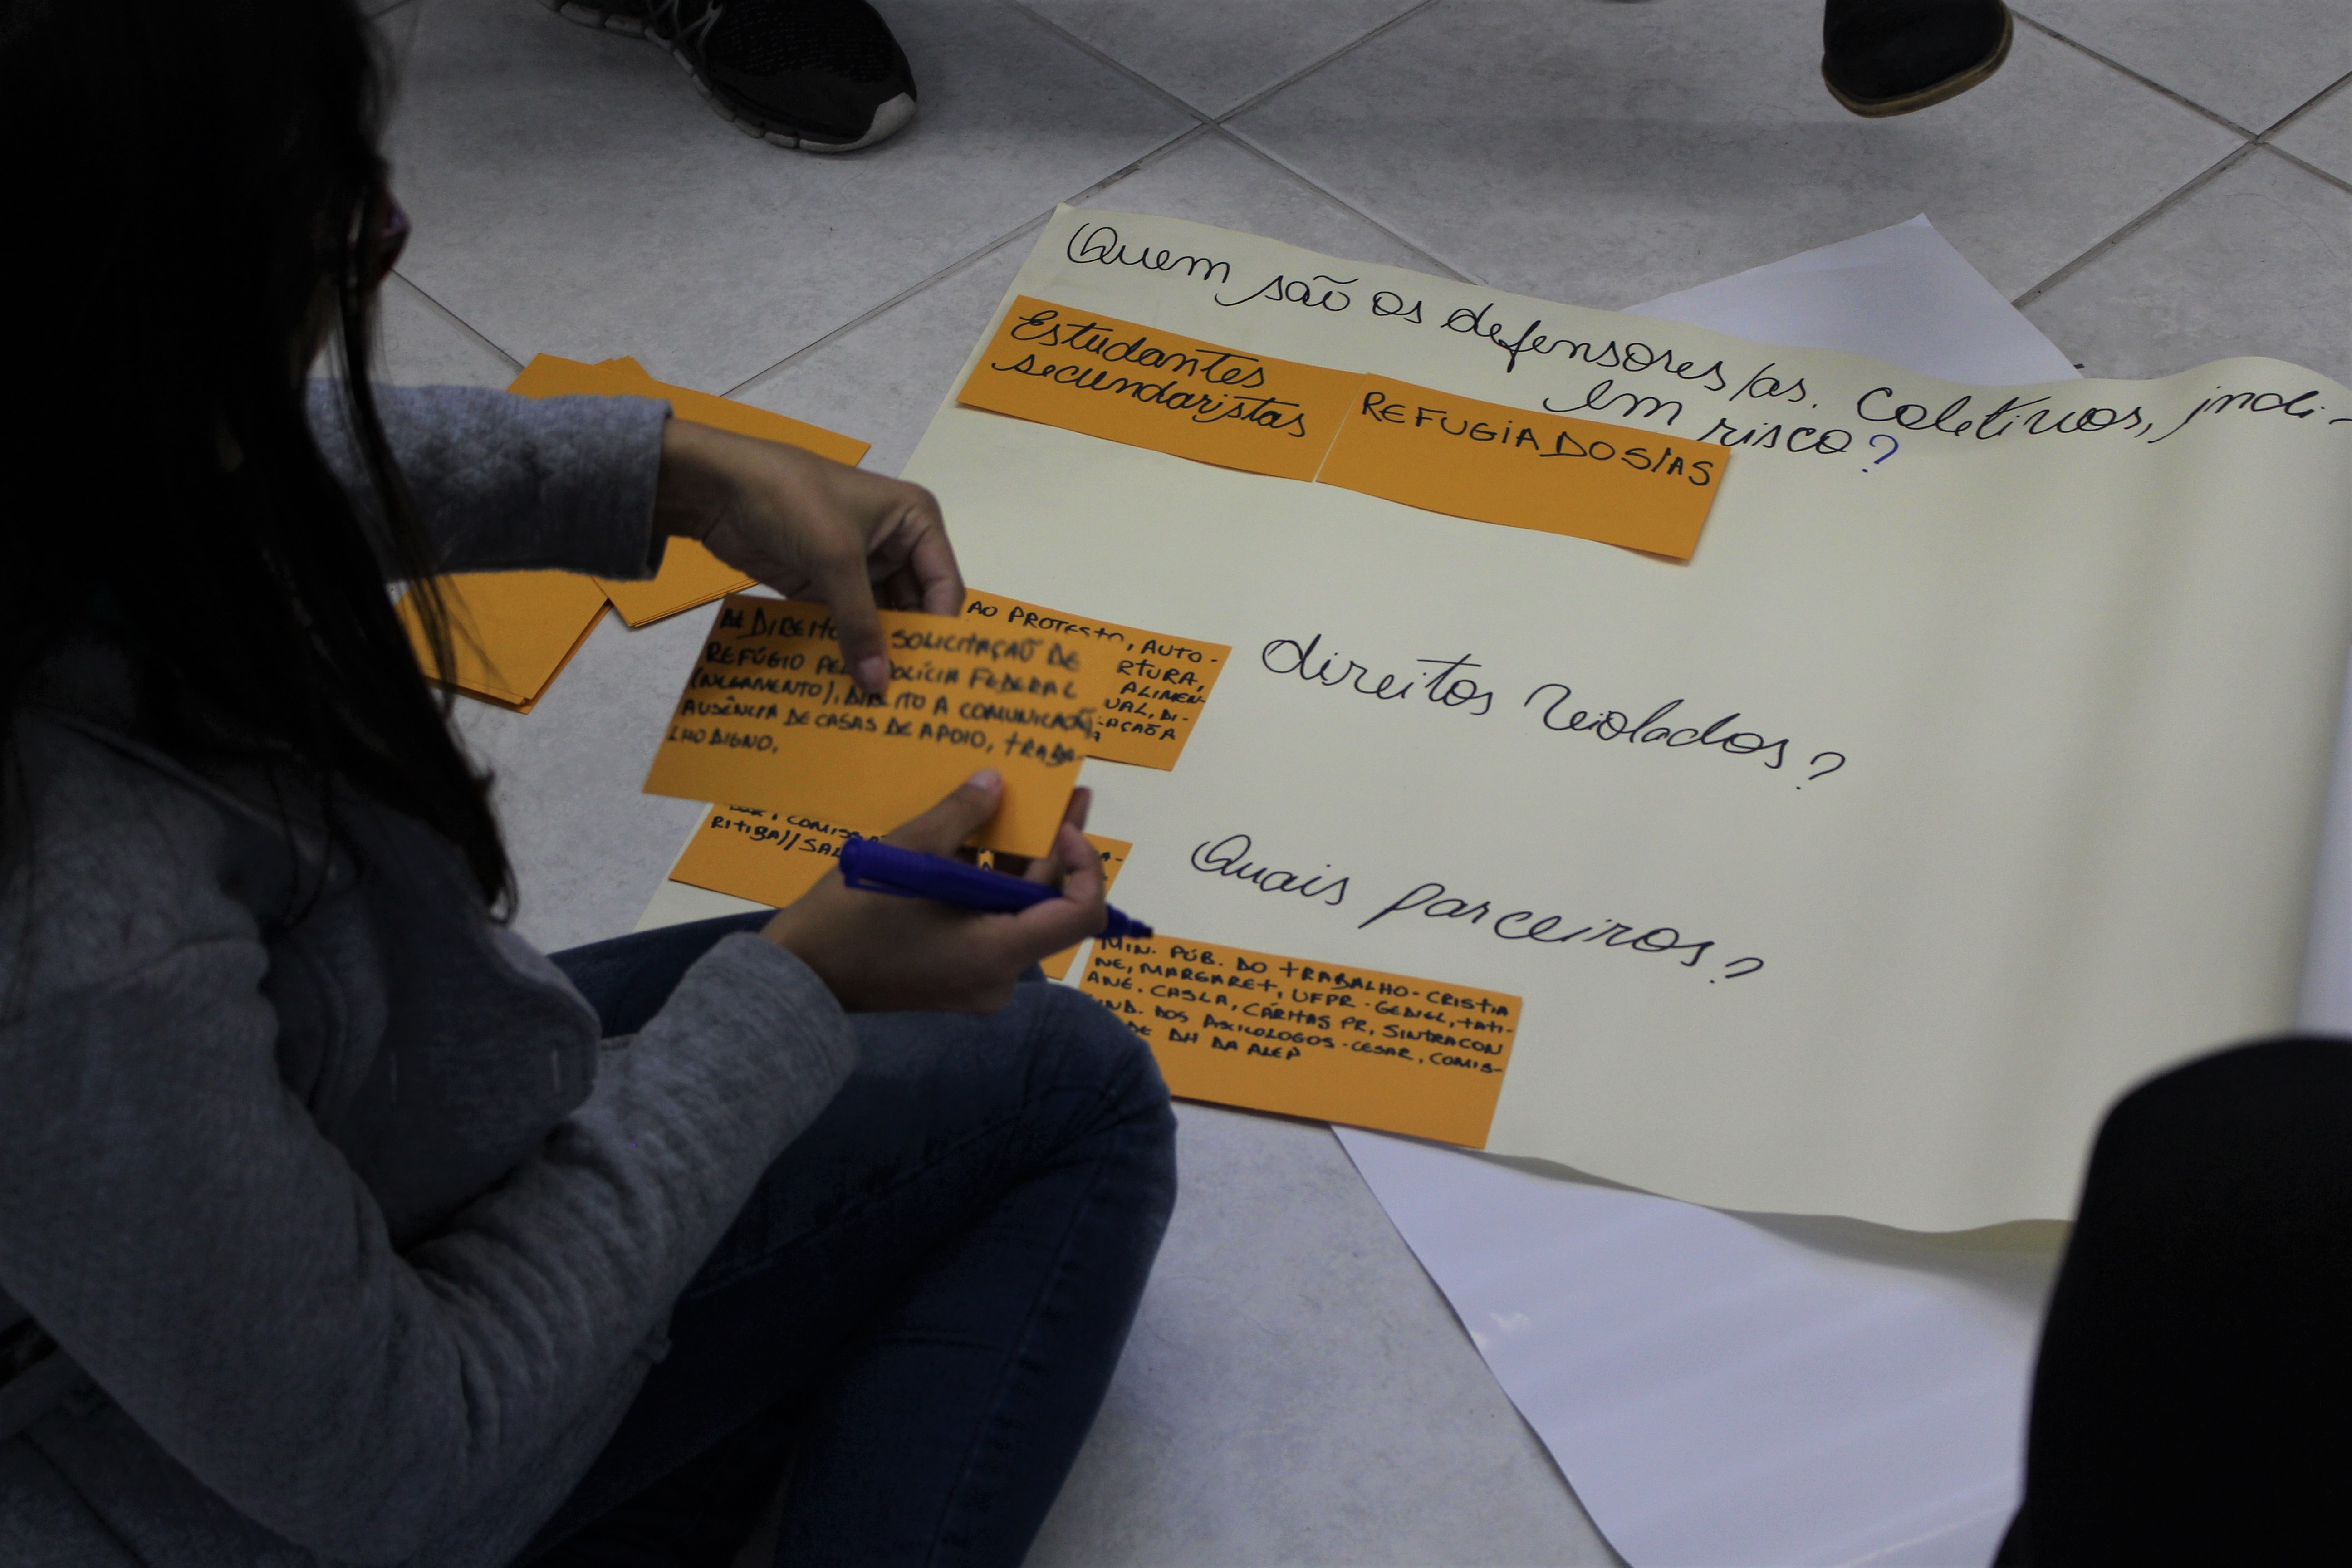 Quem são os defensores/as. Coletivos, indi-
em risco?
Estudantes
secundaristas
REFUGIADOS/AS
AO PROTESTO, AUTO-
RTURA,
ALIMEN-
UAL, DI-
DIREITO SOLICITAÇÃO DE
REFÚGIO POLÍCIA FEDERAL
DIREITO A COMUNICAÇÃO,
AUSÊNCIA DE CASAS DE APOIO, TRABA-
LHO DIGNO.
direitos violados?
RITIBA)/SAL
Quais parceiros?
MIN. PÚB. DO TRABALHO - CRISTIA
NE, MARGARET, UFPR - GEDIEL, TATI-
ANE. CASLA, CÁRITAS PR, SINTRACON
IND. DOS PSICOLOGOS - CESAR, COMIS-
DE DH DA ALEP